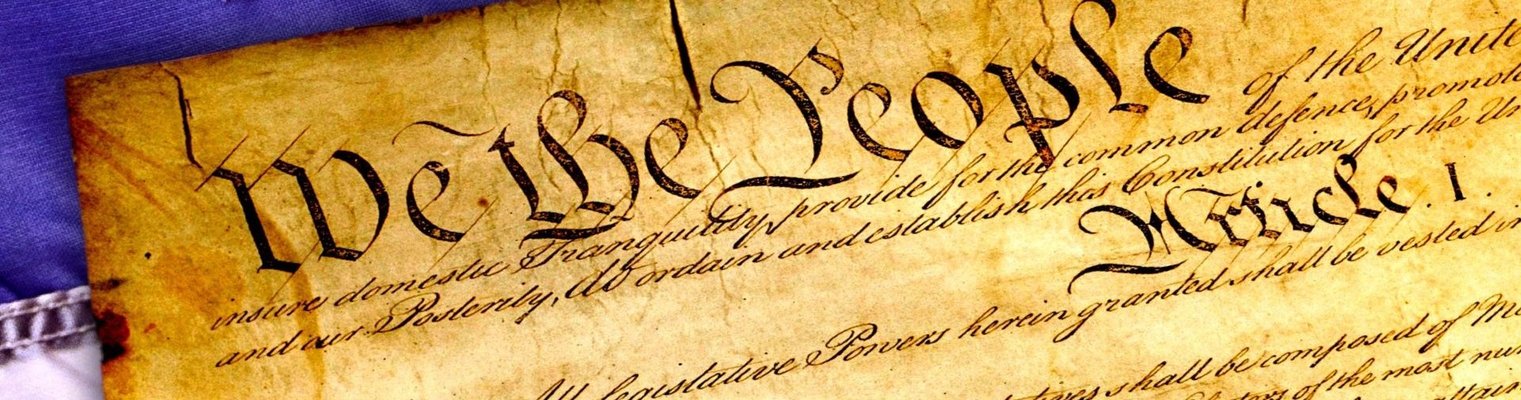 We the People of the Unite
insure domestic Tranquility, provide for the common defence, promote
and our Posterity, do ordain and establish this Constitution for the Un
Article. I.
All legislative Powers herein granted shall be vested in
tives shall be composed of Me
ctors of the most num
attain